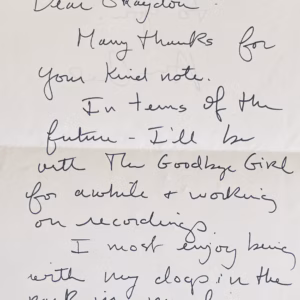 Dear Graydon
Many thanks for
your kind note.
In terms of the
future - I'll be
with The Goodbye Girl
for awhile + working
on recordings.
I most enjoy being
with my dogs in the